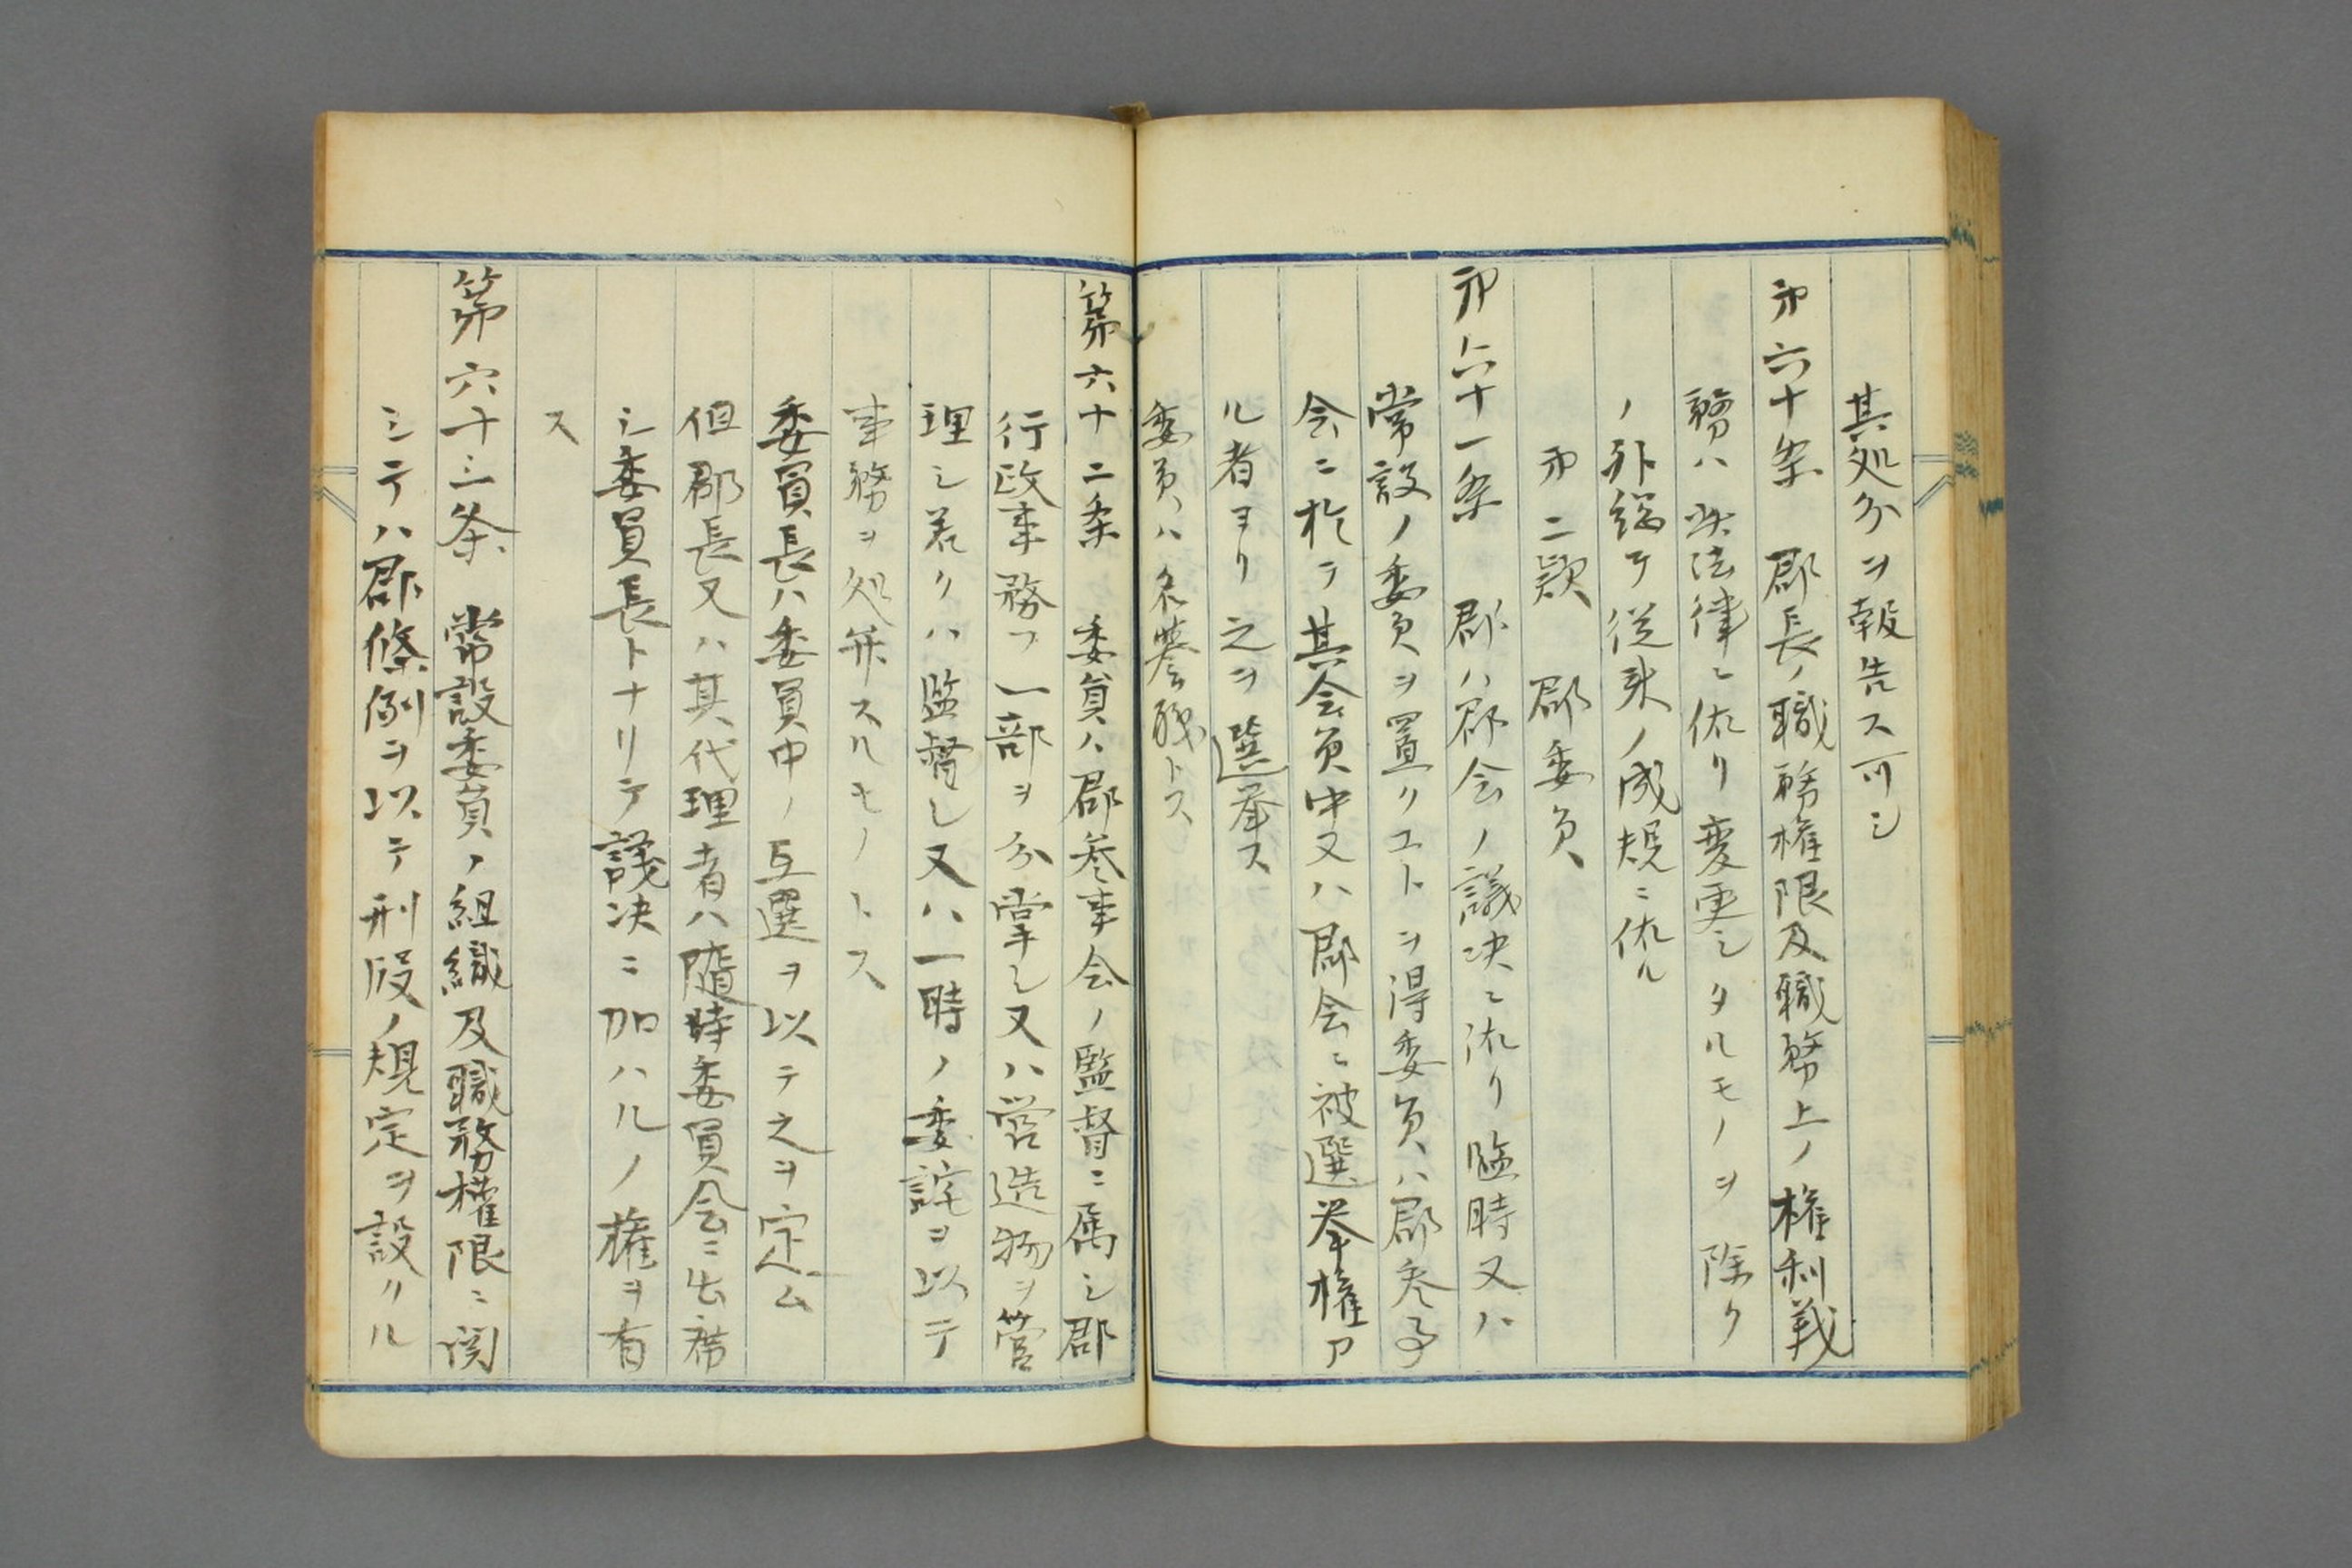 其処分ヲ報告ス可シ
第六十条　郡長ノ職務権限及職務上ノ権利義
務ハ此法律ニ依リ変更シタルモノヲ除ク
ノ外総テ従来ノ成規ニ依ル
第二款　郡委員
第六十一条　郡ハ郡会ノ議決ニ依リ臨時又ハ
常設ノ委員ヲ置クコトヲ得委員ハ郡参事
会ニ於テ其会員中又ハ郡会ニ被選挙権ア
ル者ヨリ之ヲ選挙ス
委員ハ名誉職トス
第六十二条　委員ハ郡参事会ノ監督ニ属シ郡
行政事務ノ一部ヲ分掌シ又ハ営造物ヲ管
理シ若クハ監督シ又ハ一時ノ委託ヲ以テ
事務ヲ処弁スルモノトス
委員長ハ委員中ノ互選ヲ以テ之ヲ定ム
但郡長又ハ其代理者ハ随時委員会ニ出席
シ委員長トナリテ議决ニ加ハルノ権ヲ有
ス
第六十三条　常設委員ノ組織及職務権限ニ関
シテハ郡條例ヲ以テ別段ノ規定ヲ設クル